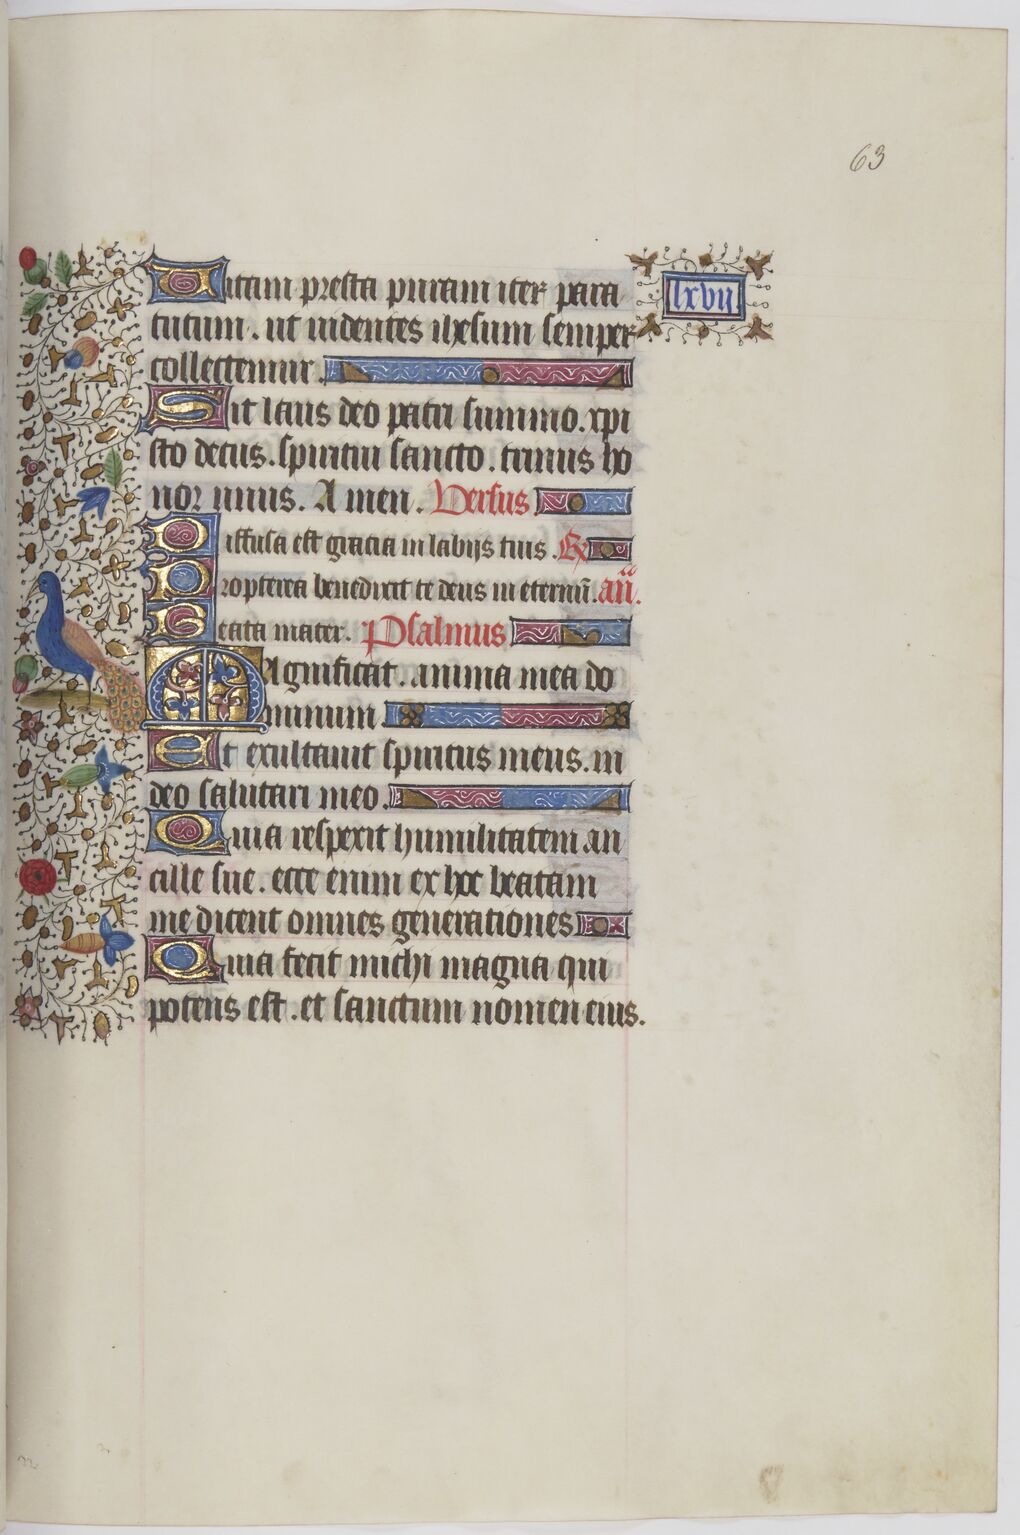 63
lxvij
Uitam presta puram iter para
tutum. ut uidentes ihesum semper
collectemur.
Sit laus deo patri summo. xpi
sto decus. spiritui sancto. trinus ho
nor unus. Amen. Versus
Diffusa est gracia in labijs tuis. Rx
Propterea benedixit te deus in eternū. añ.
Beata mater. Psalmus
MAgnificat. anima mea do
minum
Et exultauit spiritus meus. in
deo salutari meo.
Quia respexit humilitatem an
cille sue. ecce enim ex hoc beatam
me dicent omnes generationes
Quia fecit michi magna qui
potens est. et sanctum nomen eius.